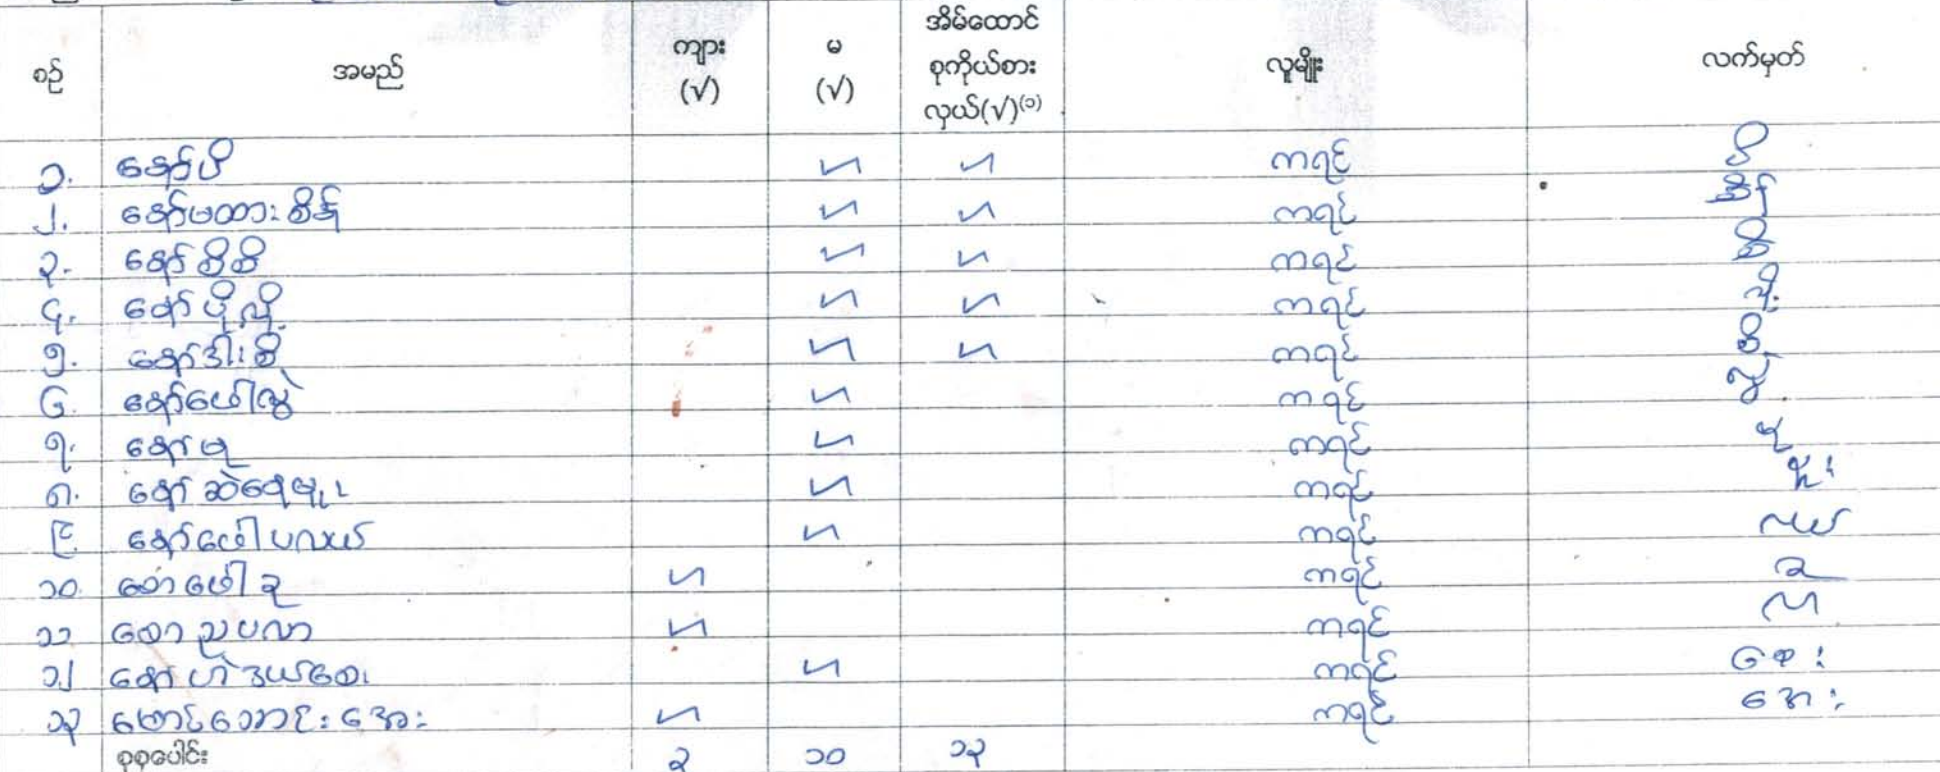 စဉ် အမည် ကျား (√) မ (√) အိမ်ထောင်စုကိုယ်စားလှယ်(√)(၁) လူမျိုး လက်မှတ်
၁. နော်ပိ ✓ ✓ ကရင် ပိ
၂. နော်မထားစိန် ✓ ✓ ကရင် စိန်
၃. နော်စိစိ ✓ ✓ ကရင် စိ
၄. နော်ပိုလို ✓ ✓ ကရင်
၅. နော်ဒါးစိ ✓ ✓ ကရင် စိ
၆. နော်ဖေါလွဲ ✓ ကရင် လွဲ
၇. နော်မု ✓ ကရင် မု
၈. နော်ဆဲနေမူး ✓ ကရင် မူး
၉. နော်ဖေါပလယ် ✓ ကရင် လယ်
၁၀. စောဖေါခု ✓ ကရင် ခ
၁၁ စောညပလာ ✓ ကရင် လာ
၁၂ နော်ဟဲဒယ်စေး ✓ ကရင် စေး
၁၃ မောင်သောင်းအေး ✓ ကရင် အေး
စုစုပေါင်း ၃ ၁၀ ၁၃